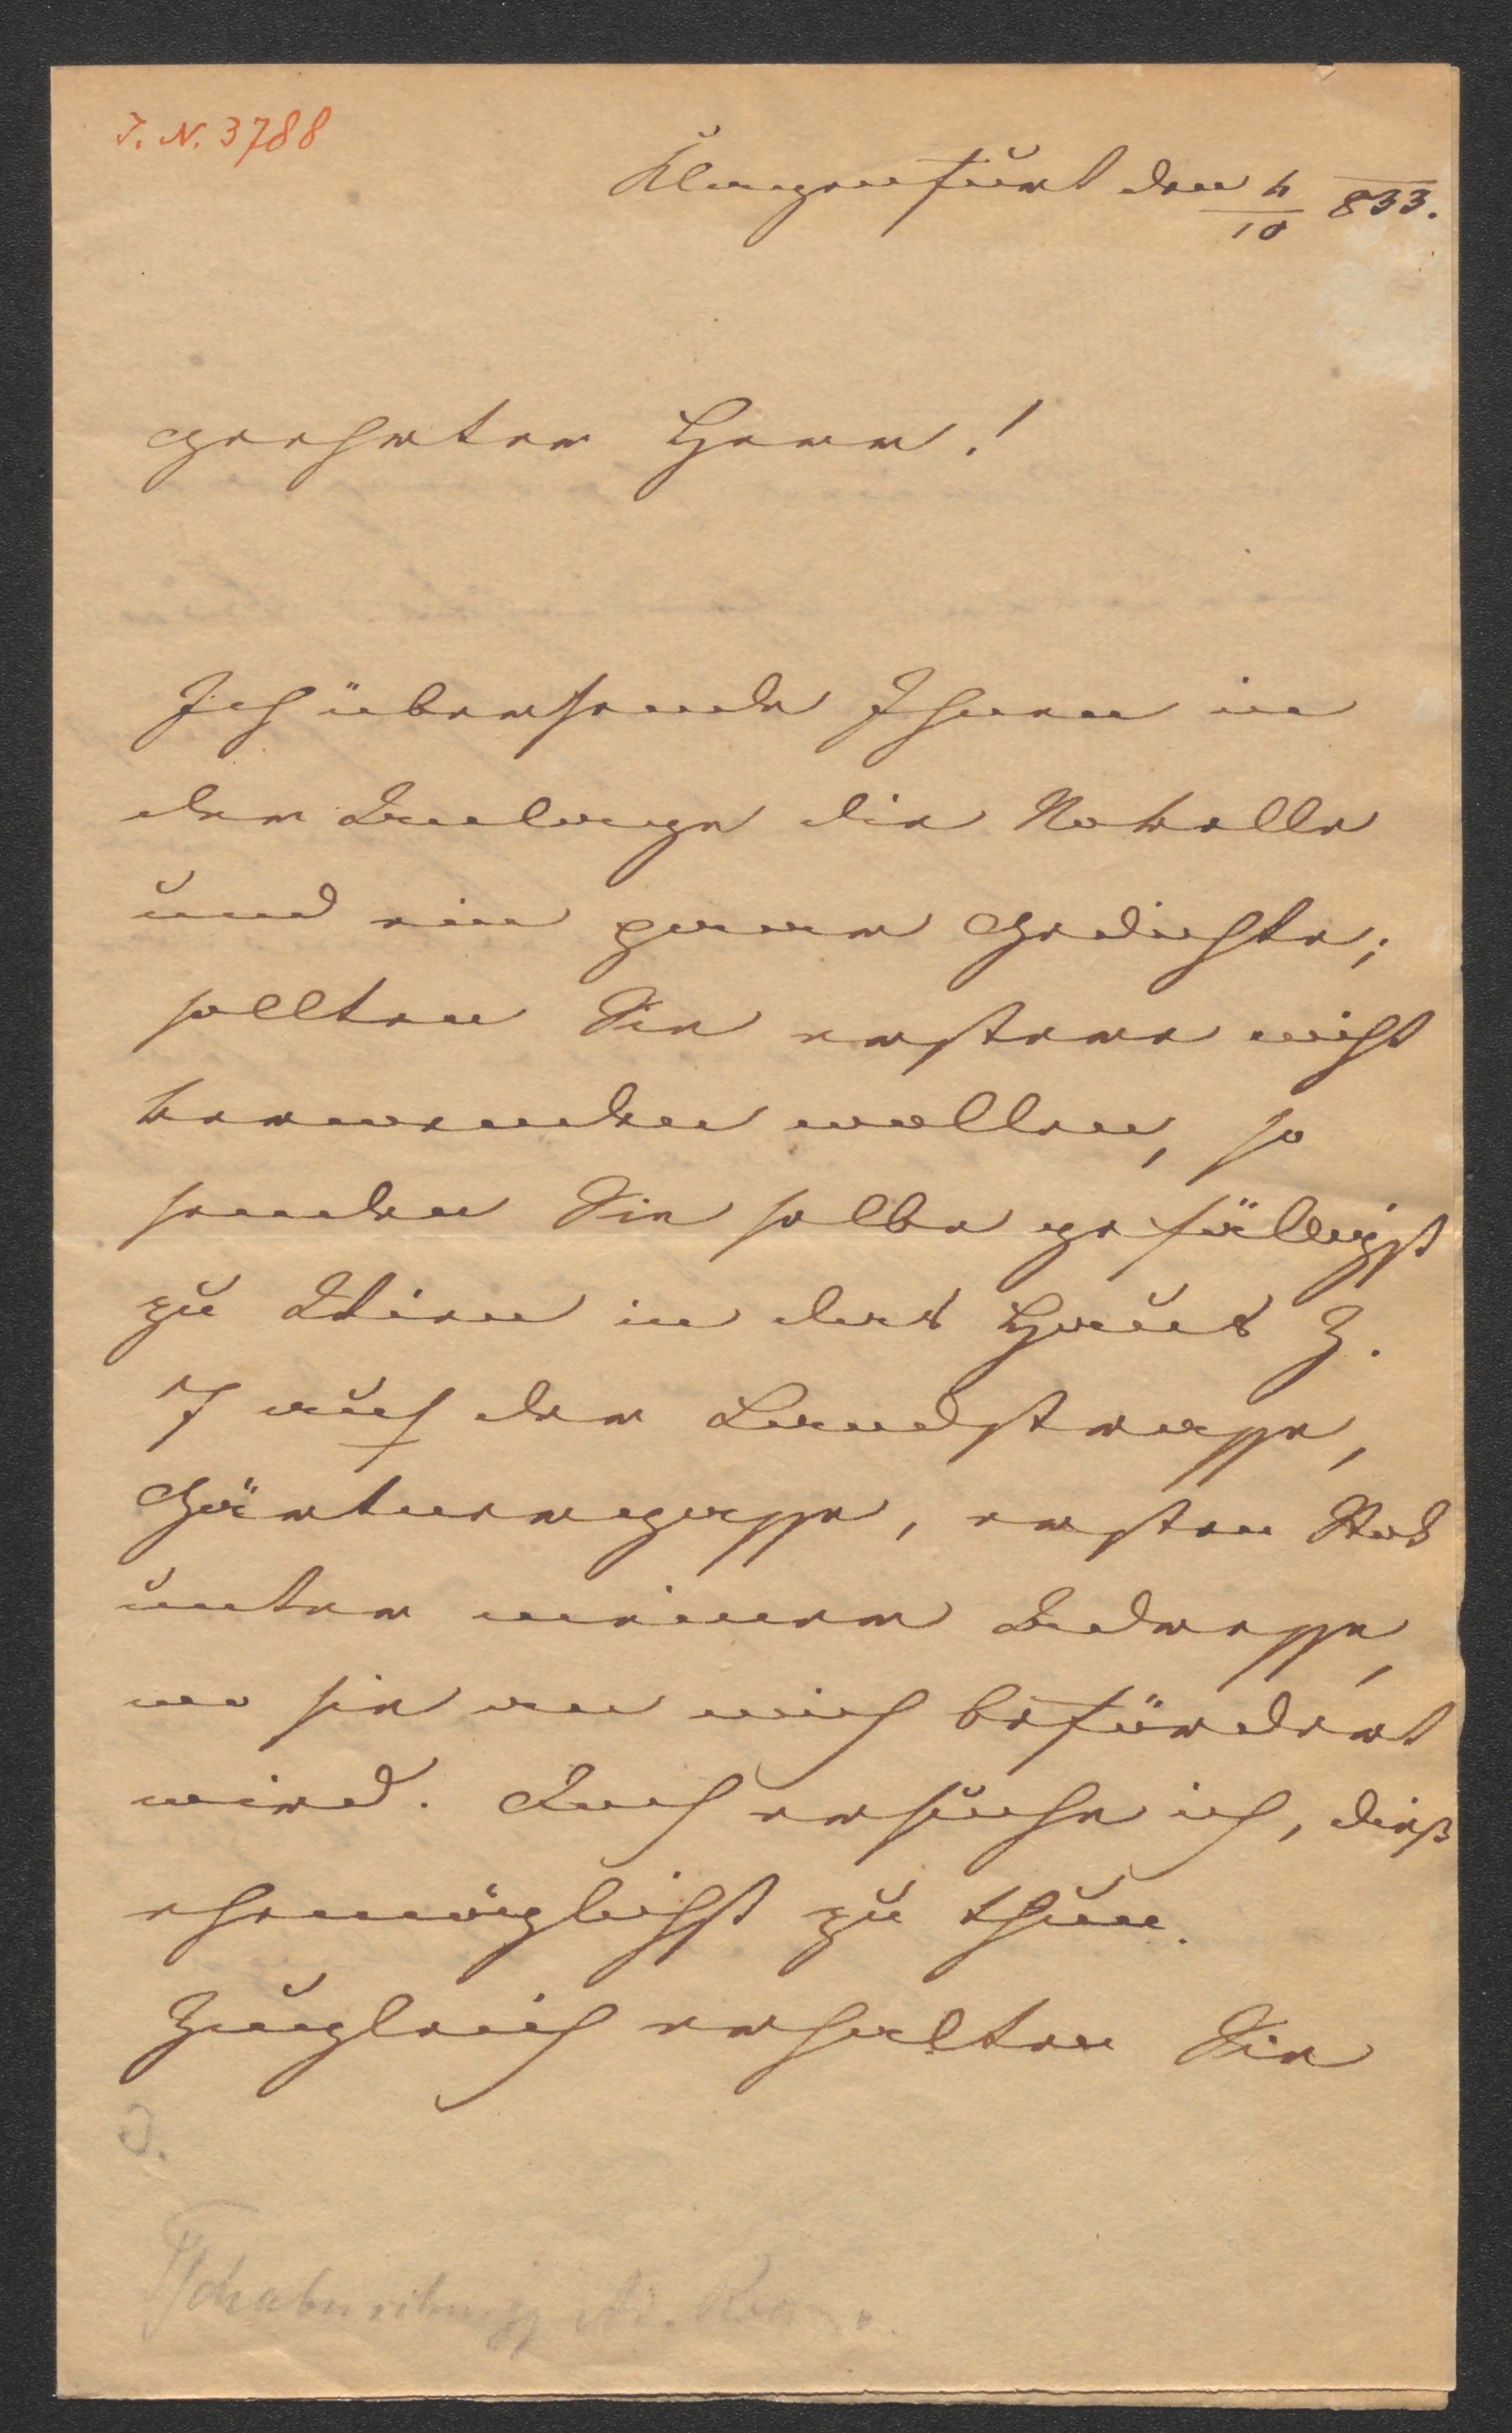 I. N. 3788
Klagenfurt den 4/10 833.
Geehrter Herr!
Ich übersende Ihnen in
der Anlage die Novelle
und ein paar Gedichte;
sollten Sie erstere nicht
verwenden wollen, so
senden Sie selbe gefälligst
zu Wien in das Haus Z.
7 auf der Landstrasse,
Gärtnergasse, ersten Stock
unter meiner Adresse,
wo sie an mich befördert
wird. Auch ersuche ich, dieß
ehemöglichst zu thun.
Zugleich erhalten Sie